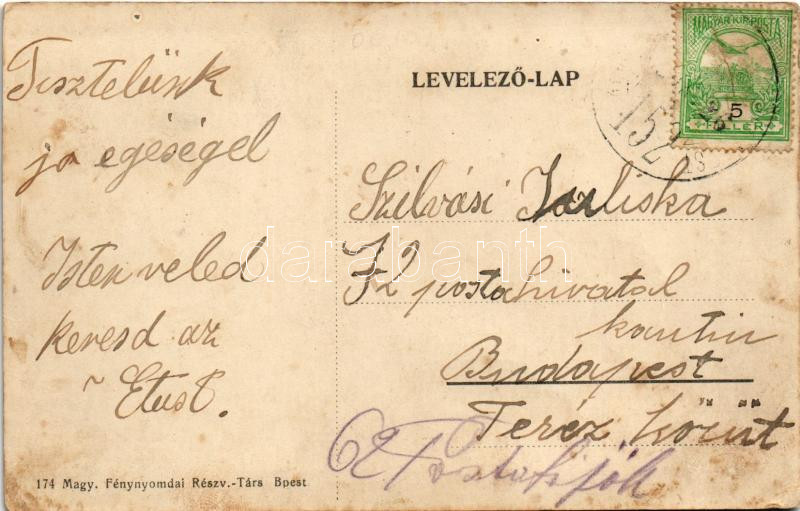 Tisztelünk
jo egéségel
Isten veled
keresd az
Etust.
174 Magy. Fénynyomdai Részv.-Társ Bpest
LEVELEZŐ-LAP
MAGYAR KIR. POSTA
5
FILLÉR
152
Szilvási Juliska
postahivatal
kantin
Budapest
Teréz Körút
62
darabanth